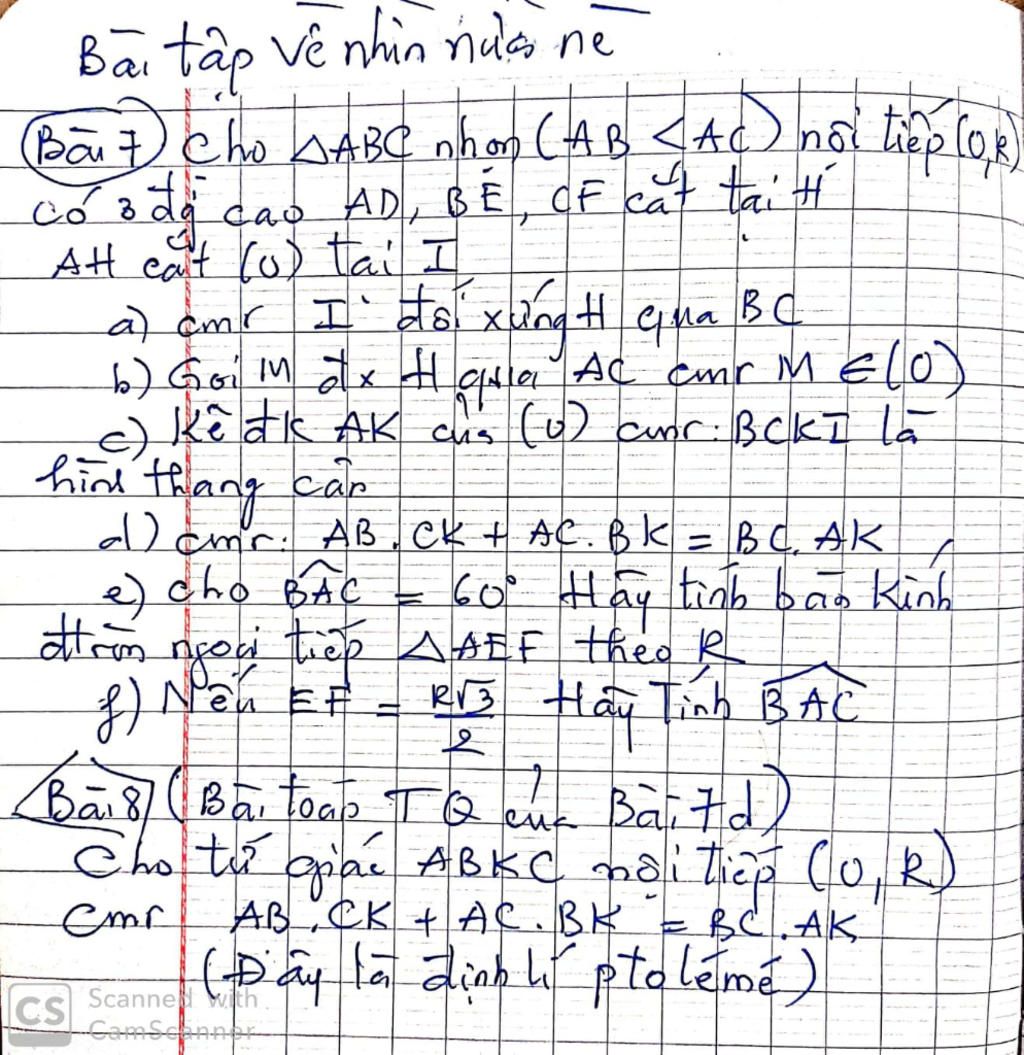 Bài tập về nhìn nữa nè
Bài 7) Cho △ABC nhọn (AB < AC) nội tiếp (O,R)
có 3 đg cao AD, BE, CF cắt tại H
AH cắt (O) tại I
a) cmr I đối xứng H qua BC
b) Gọi M đx H qua AC cmr M ∈ (O)
c) Kẻ đk AK của (O) cmr: BCKI là
hình thang cân
d) cmr: AB.CK + AC.BK = BC.AK
e) cho \widehat{BAC} = 60° Hãy tính bán kính
đtròn ngoại tiếp △AEF theo R
f) Nếu EF = \frac{R√3}{2} Hãy Tính \widehat{BAC}
Bài 8) (Bài toán TQ của Bài 7d)
Cho tứ giác ABKC nội tiếp (O, R)
Cmr AB.CK + AC.BK = BC.AK
(Đây là định lí ptolémé)
CS Scanned with
CamScanner